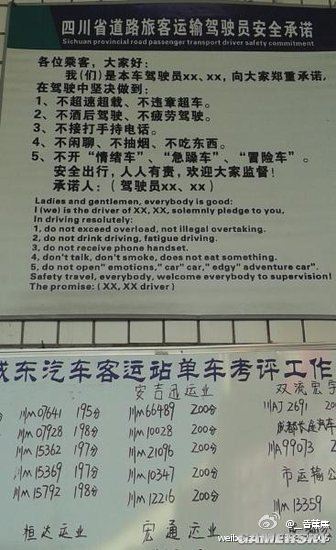 四川省道路旅客运输驾驶员安全承诺
Sichuan provincial road passenger transport driver safety commitment
各位乘客，大家好：
我(们)是本车驾驶员xx、xx，向大家郑重承诺，
在驾驶中坚决做到：
1、不超速超载、不违章超车。
2、不酒后驾驶、不疲劳驾驶。
3、不接打手持电话。
4、不闲聊、不抽烟、不吃东西。
5、不开“情绪车”、“急躁车”、“冒险车”。
安全出行，人人有责，欢迎大家监督！
承诺人：(驾驶员xx、xx)
Ladies and gentlemen, everybody is good:
I (we) is the driver of XX, XX, solemnly pledge to you,
In driving resolutely:
1, do not exceed overload, not illegal overtaking.
2, do not drink driving, fatigue driving.
3, do not receive phone handset.
4, don't talk, don't smoke, does not eat something.
5, do not open" emotions," car" car," edgy" adventure car".
Safety travel, everybody, welcome everybody to supervision!
The promise: (XX, XX driver)
城东汽车客运站单车考评工作
安吉迅运业 双流宏宇
川M07641 195分 川M66489 200分 川AJ2691 200
川M07928 198分 川M10028 200分 成都长途汽车
川M15362 197分 川M21096 200分 川A99073 2
川M15369 197分 川M10347 200分 市运输公
川M15792 198分 川M12216 200分 川M13359
恒达运业 宏通运业